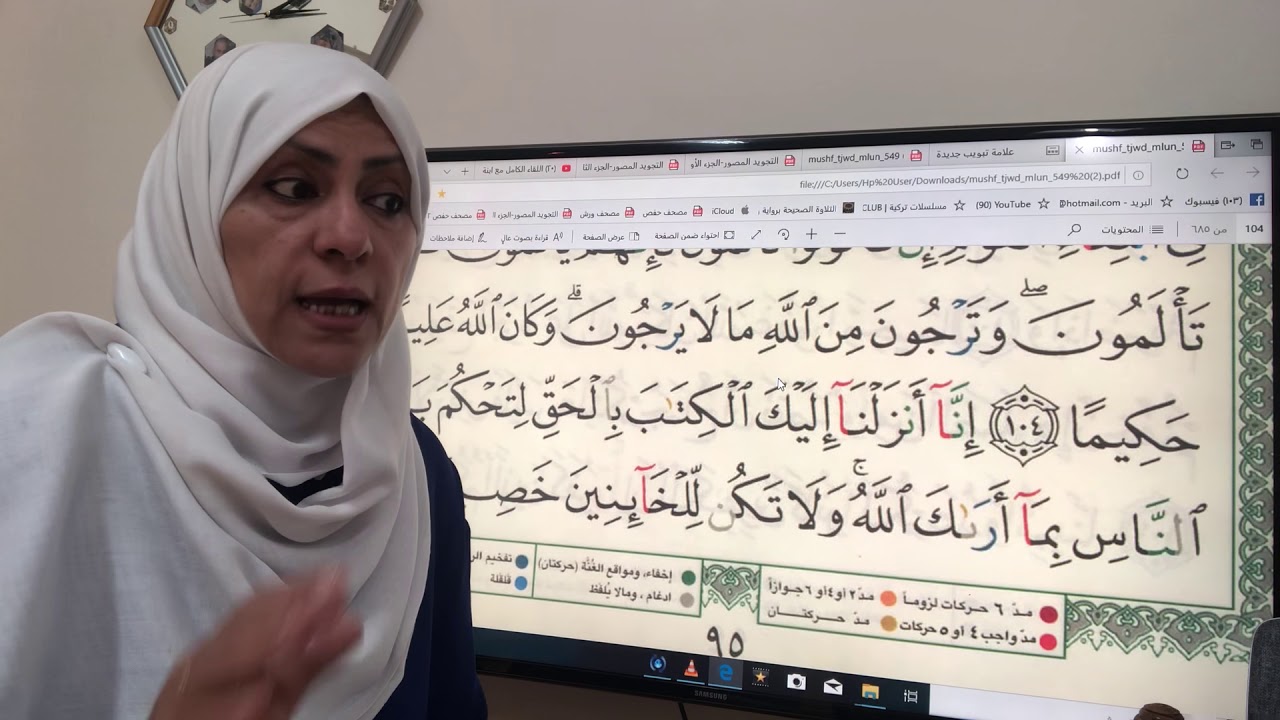 mushf_tjwd_mlun_5
علامة تبويب جديدة
mushf_tjwd_mlun_549
التجويد المصور-الجزء الأو
التجويد المصور-الجزء الثا
(٢٠) اللقاء الكامل مع ابنة
file:///C:/Users/Hp%20User/Downloads/mushf_tjwd_mlun_549%20(2).pdf
(١٠٣) فيسبوك
البريد - hotmail.com
(90) YouTube
مسلسلات تركية | CLUB
التلاوة الصحيحة برواية
iCloud
مصحف حفص
مصحف ورش
التجويد المصور-الجزء ال
مصحف حفص ٢
104 من ٦٨٥
المحتويات
احتواء ضمن الصفحة
عرض الصفحة
قراءة بصوت عالٍ
إضافة ملاحظات
تَأْلَمُونَ ۖ وَتَرْجُونَ مِنَ ٱللَّهِ مَا لَا يَرْجُونَ ۗ وَكَانَ ٱللَّهُ عَلِيـ
حَكِيمًا ١٠٤ إِنَّآ أَنزَلْنَآ إِلَيْكَ ٱلْكِتَٰبَ بِٱلْحَقِّ لِتَحْكُمَ بَـ
ٱلنَّاسِ بِمَآ أَرَىٰكَ ٱللَّهُ ۚ وَلَا تَكُن لِّلْخَآئِنِينَ خَصِـ
مدّ ٦ حركات لزوماً
مدّ ٢ أو ٤ أو ٦ جوازاً
إخفاء، ومواقع الغُنَّة (حركتان)
تفخيم الر
مدّ واجب ٤ أو ٥ حركات
مدّ حركتـــان
ادغام ، ومالا يُلفَظ
قلقلة
٩٥
SAMSUNG